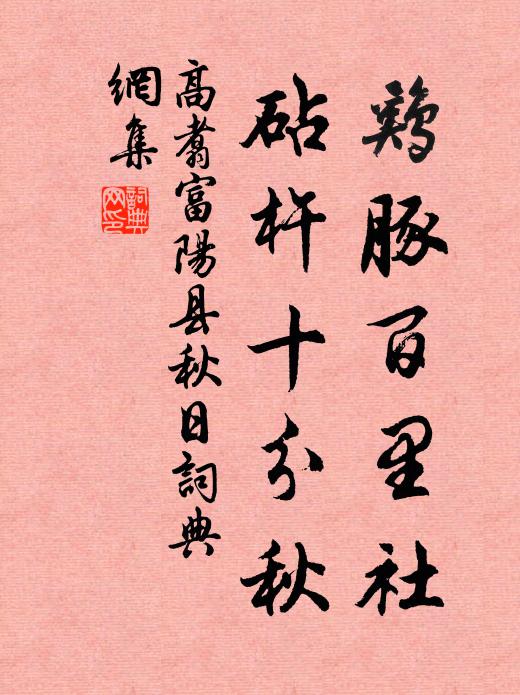 鷄豚百里社
砧杵十分秋
高翥富陽县秋日詞典
網集
詞典网印